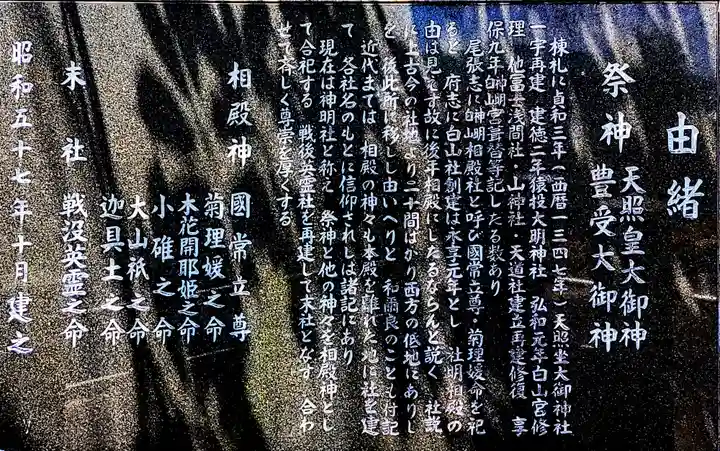 由緒
祭神 天照皇大御神
豊受大御神
棟札に貞和三年(西暦一三四七年)天照坐大御神社
一宇再建 建徳二年猿投大明神社 弘和元年白山宮修
理 他富士浅間社 山神社 天道社建立再建修復 享
保九年神明宮葺替等記したる数あり
尾張志に神明相殿社と呼び國常立尊 菊理媛命を祀
ると 府志に白山社創建は永享元年とし 社明相殿の
由は見えず故に後年相殿にしたるならんと説く 社説
に上古今の社地より二十間ばかり西方の低地にありし
を 後此所に移しし由いへりと 和爾良のことも付記
近代までは 相殿の神々も本殿を離れた地に社を建
て 各社名のもとに信仰されしは諸記にあり
現在は神明社と称え 祭神と他の神々を相殿神とし
て合祀する 戦後英霊社を再建して末社となす 合わ
せて斉しく尊崇を厚くする
相殿神 國常立尊
菊理媛之命
木花開耶姫之命
小碓之命
大山祇之命
迦具土之命
末社 戦没英霊之命
昭和五十七年十月建之